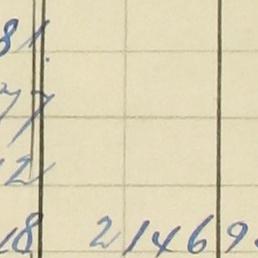 81.
77
12
18 21469